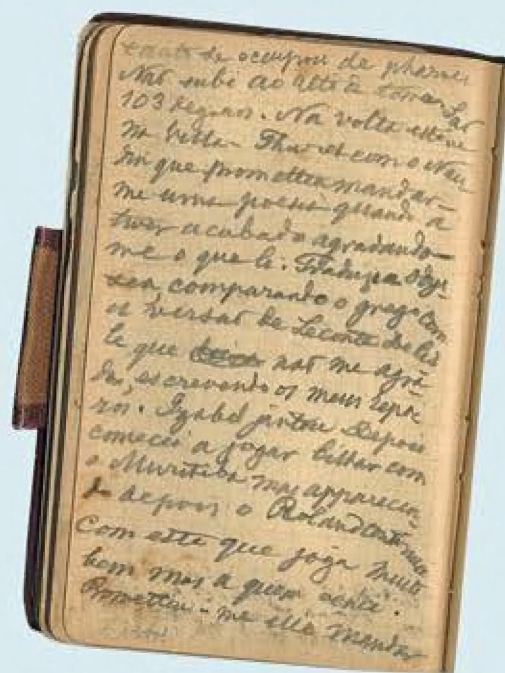 tanto se occupou de pharoes
Não subi ao alto da torre. São
103 degraos. Na volta estive
na Villa-Thuret com o Nau
din que prometteu mandar-
me uma poesia quando a
tiver acabado agradando-
me o que li. Traduzi a Odys-
sea, comparando o grego com
a versão de Leconte de Lis
le que não me agra
da, escrevendo os meus repa
ros. Izabel jantou. Depois
comecei a jogar bilhar com
o Muritiba mas apparecen
do depois o Roland
com este que joga muito
bem mas a quem venci.
Prometteu-me elle mandar